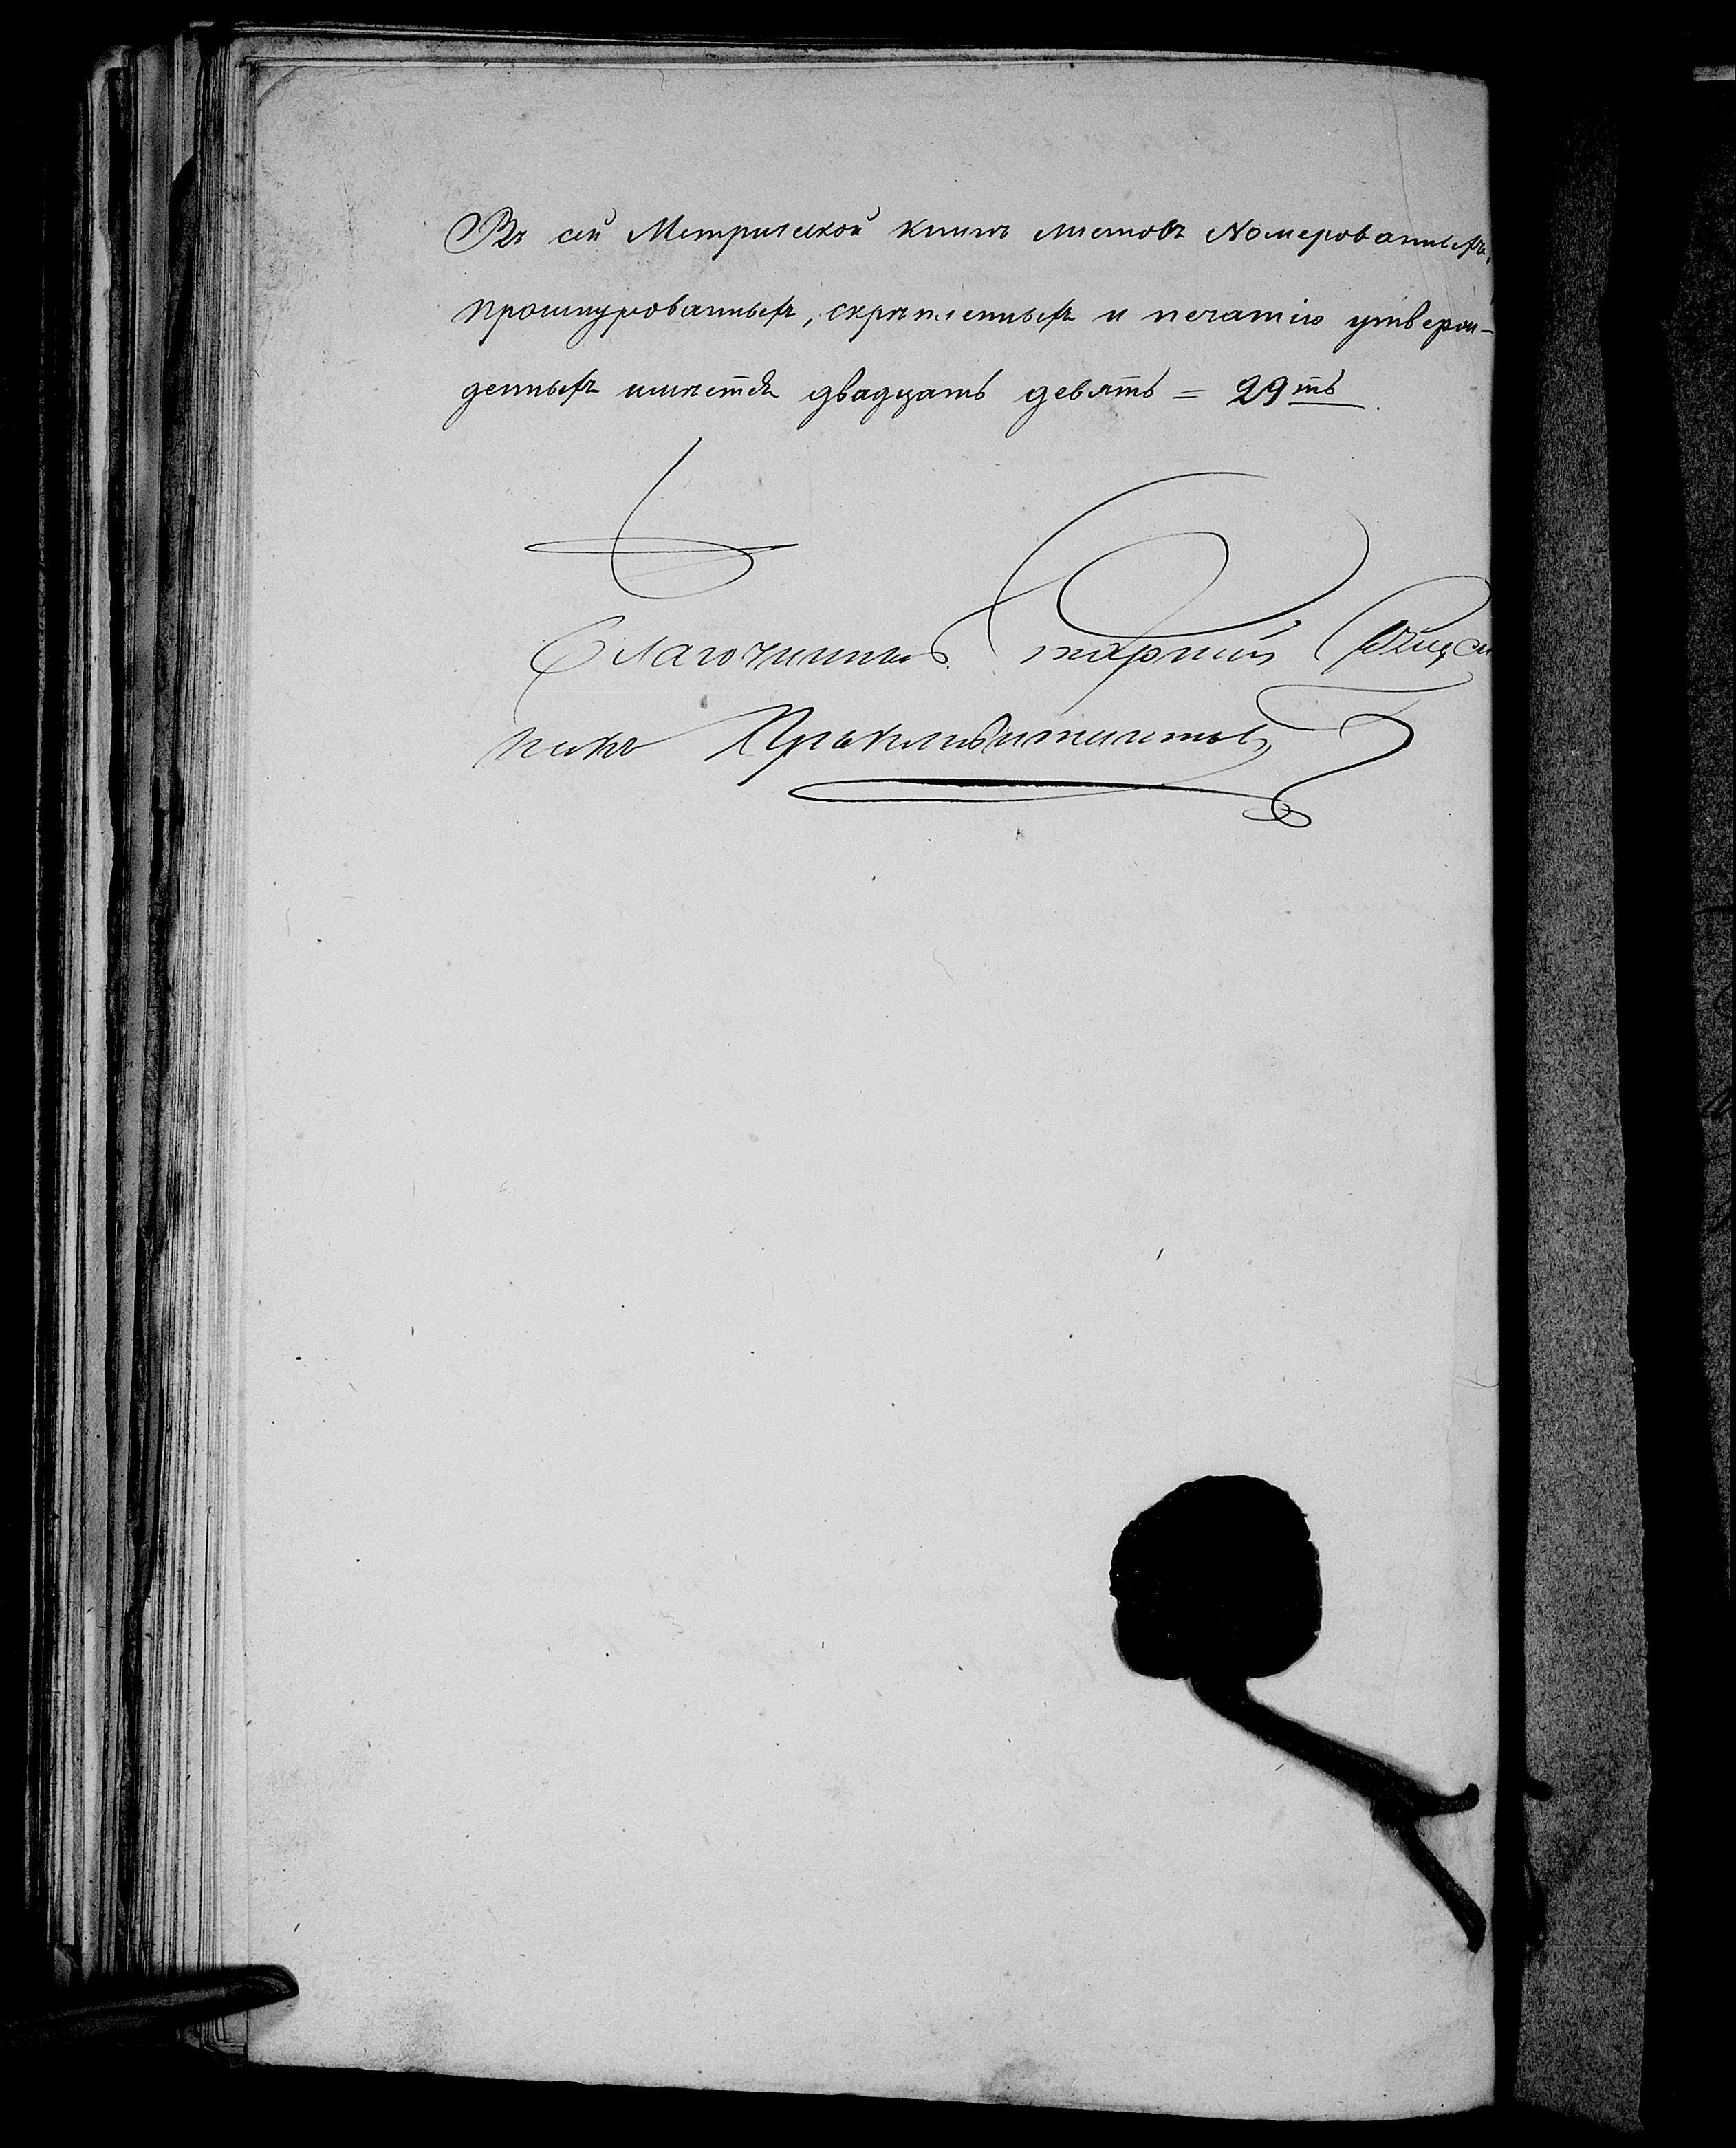 Въ сей Метрической книгѣ листовъ Номерованныхъ,
прошнурованныхъ, скрѣпленныхъ и печатію утверж-
денныхъ имѣется двадцать девять = 29ть.
Благочинный